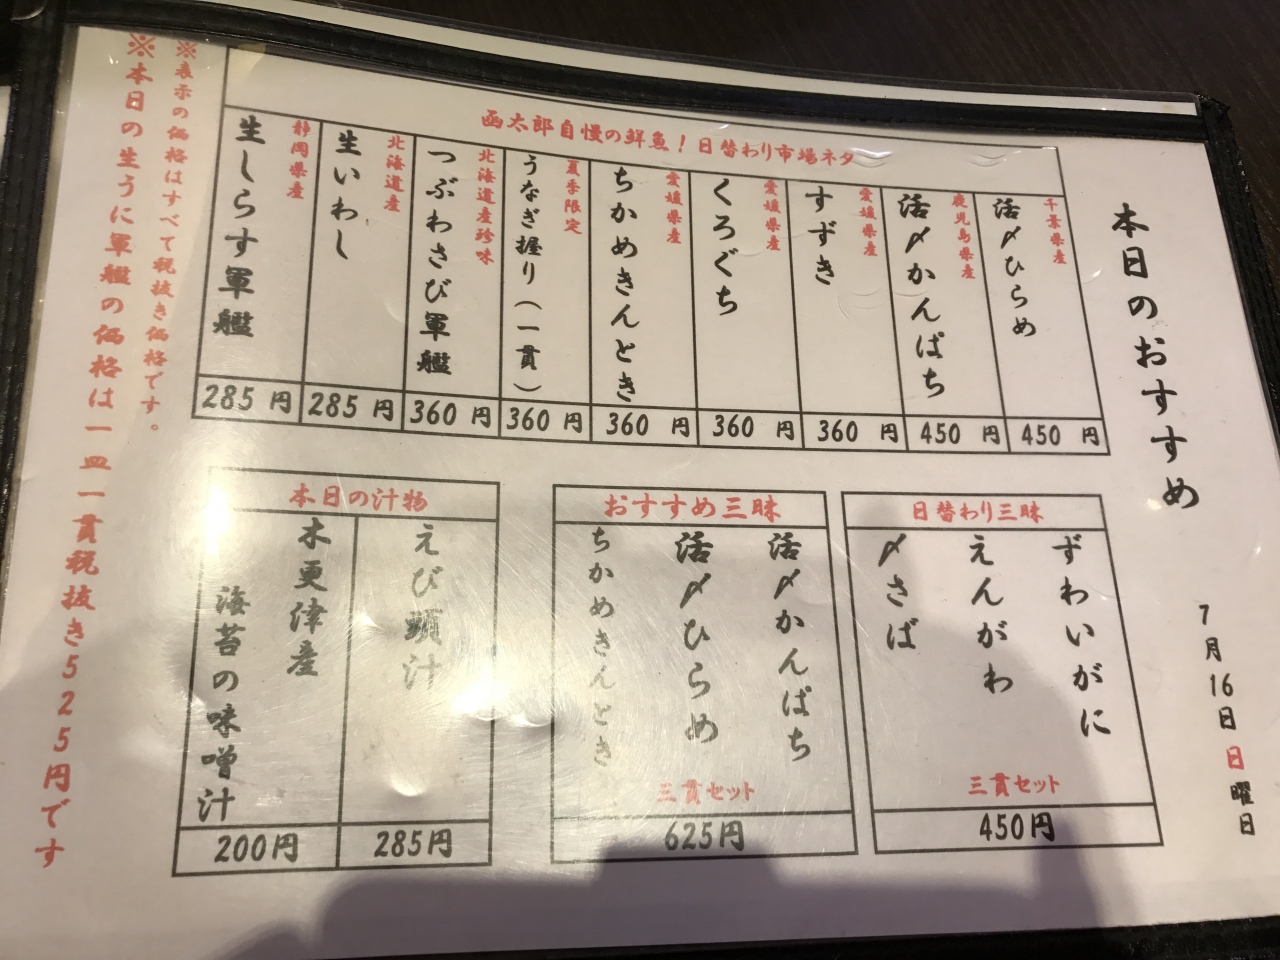 本日のおすすめ
7月16日日曜日
函太郎自慢の鮮魚！日替わり市場ネタ
千葉県産
活〆ひらめ
450円
鹿児島県産
活〆かんぱち
450円
愛媛県産
すずき
360円
愛媛県産
くろぐち
360円
愛媛県産
ちかめきんとき
360円
夏季限定
うなぎ握り（一貫）
360円
北海道産珍味
つぶわさび軍艦
360円
北海道産
生いわし
285円
静岡県産
生しらす軍艦
285円
日替わり三昧
ずわいがに
えんがわ
〆さば
三貫セット
450円
おすすめ三昧
活〆かんぱち
活〆ひらめ
ちかめきんとき
三貫セット
625円
本日の汁物
えび頭汁
285円
木更津産
海苔の味噌汁
200円
※表示の価格はすべて税抜き価格です。
※本日の生うに軍艦の価格は一皿一貫税抜き525円です